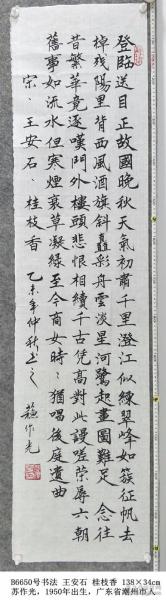 登臨送目正故國晚秋天氣初肅千里澄江似練翠峰如簇征帆去
棹殘陽里背西風酒旗斜矗彩舟雲淡星河鷺起畫圖難足 念往
昔繁華競逐嘆門外樓頭悲恨相續千古凭高對此謾嗟榮辱六朝
舊事如流水但寒煙衰草凝綠至今商女時〻猶唱後庭遺曲
宋、王安石、桂枝香 乙未年仲秋书之 蘇作光
B6650号书法 王安石 桂枝香 138×34cm
苏作光，1950年出生，广东省潮州市人